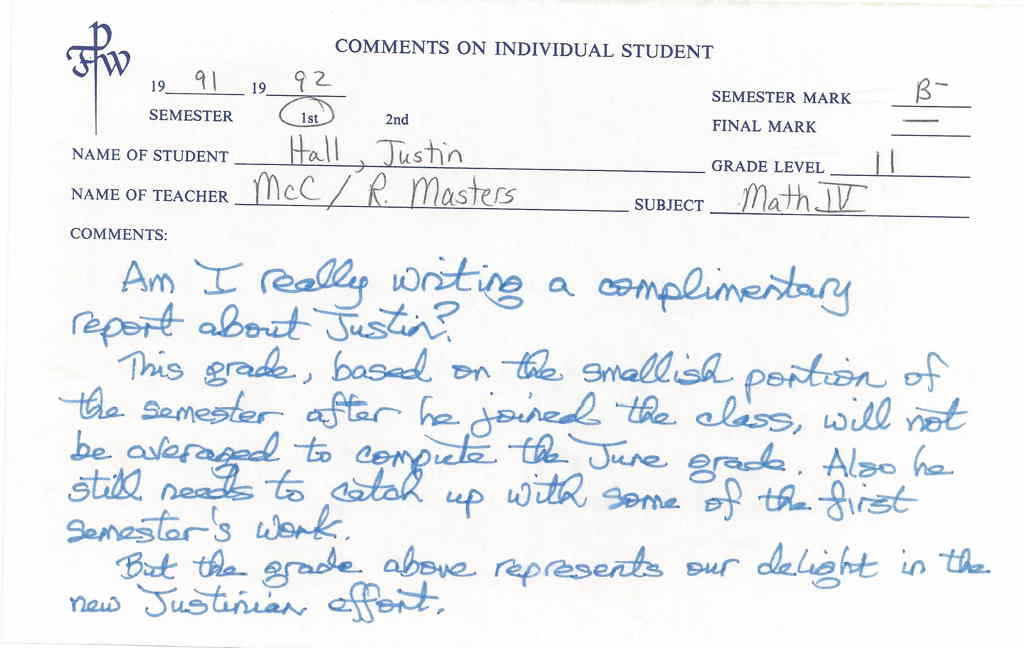 FPW
COMMENTS ON INDIVIDUAL STUDENT
19 91 19 92
SEMESTER 1st 2nd
SEMESTER MARK B-
FINAL MARK —
NAME OF STUDENT Hall, Justin
GRADE LEVEL 11
NAME OF TEACHER McC / R. Masters SUBJECT Math IV
COMMENTS:
Am I really writing a complimentary
report about Justin?
This grade, based on the smallish portion of
the semester after he joined the class, will not
be averaged to compute the June grade. Also he
still needs to catch up with some of the first
semester's work.
But the grade above represents our delight in the
new Justinian effort.